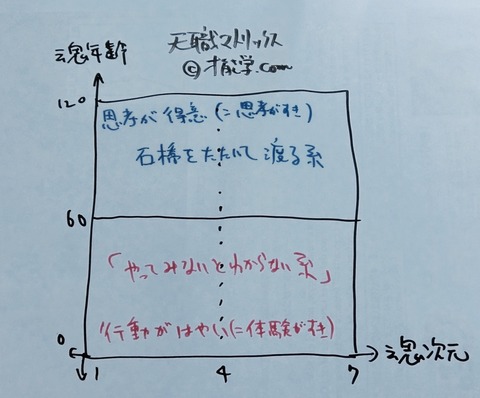 天職マトリックス
©才能学.com
魂年齢
120
思考が得意(=思考がすき)
石橋をたたいて渡る系
60
「やってみないとわからない系」
行動がはやい(=体験がすき)
0
1 4 7
魂次元